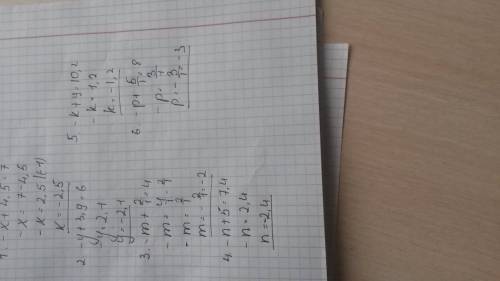 1. -x+4,5=7
-x=7-4,5
-x=2,5 |(-1)
x=-2,5
2. -y+3,9=6
y=-2,1
3. -m+2/1=4
-m=2/1
m=-2/1=-2
4. -n+5=7,4
-n=2,4
n=-2,4
5 -k+9=10,2
-k=1,2
k=-1,2
6 -p+5/1=8
-p=3/1
p=-3/1=-3